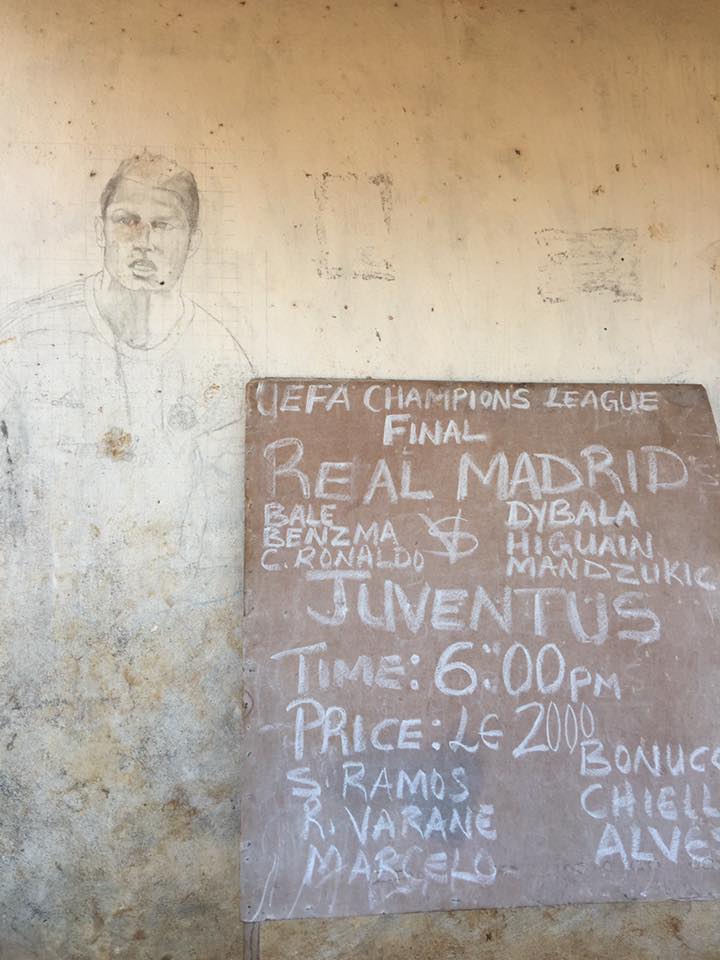 UEFA CHAMPIONS LEAGUE
FINAL
REAL MADRID
BALE
BENZMA
C. RONALDO
VS
DYBALA
HIGUAIN
MANDZUKIC
JUVENTUS
TIME: 6:00PM
PRICE: LE 2000
S. RAMOS
R. VARANE
MARCELO
BONUCC
CHIELL
ALVES